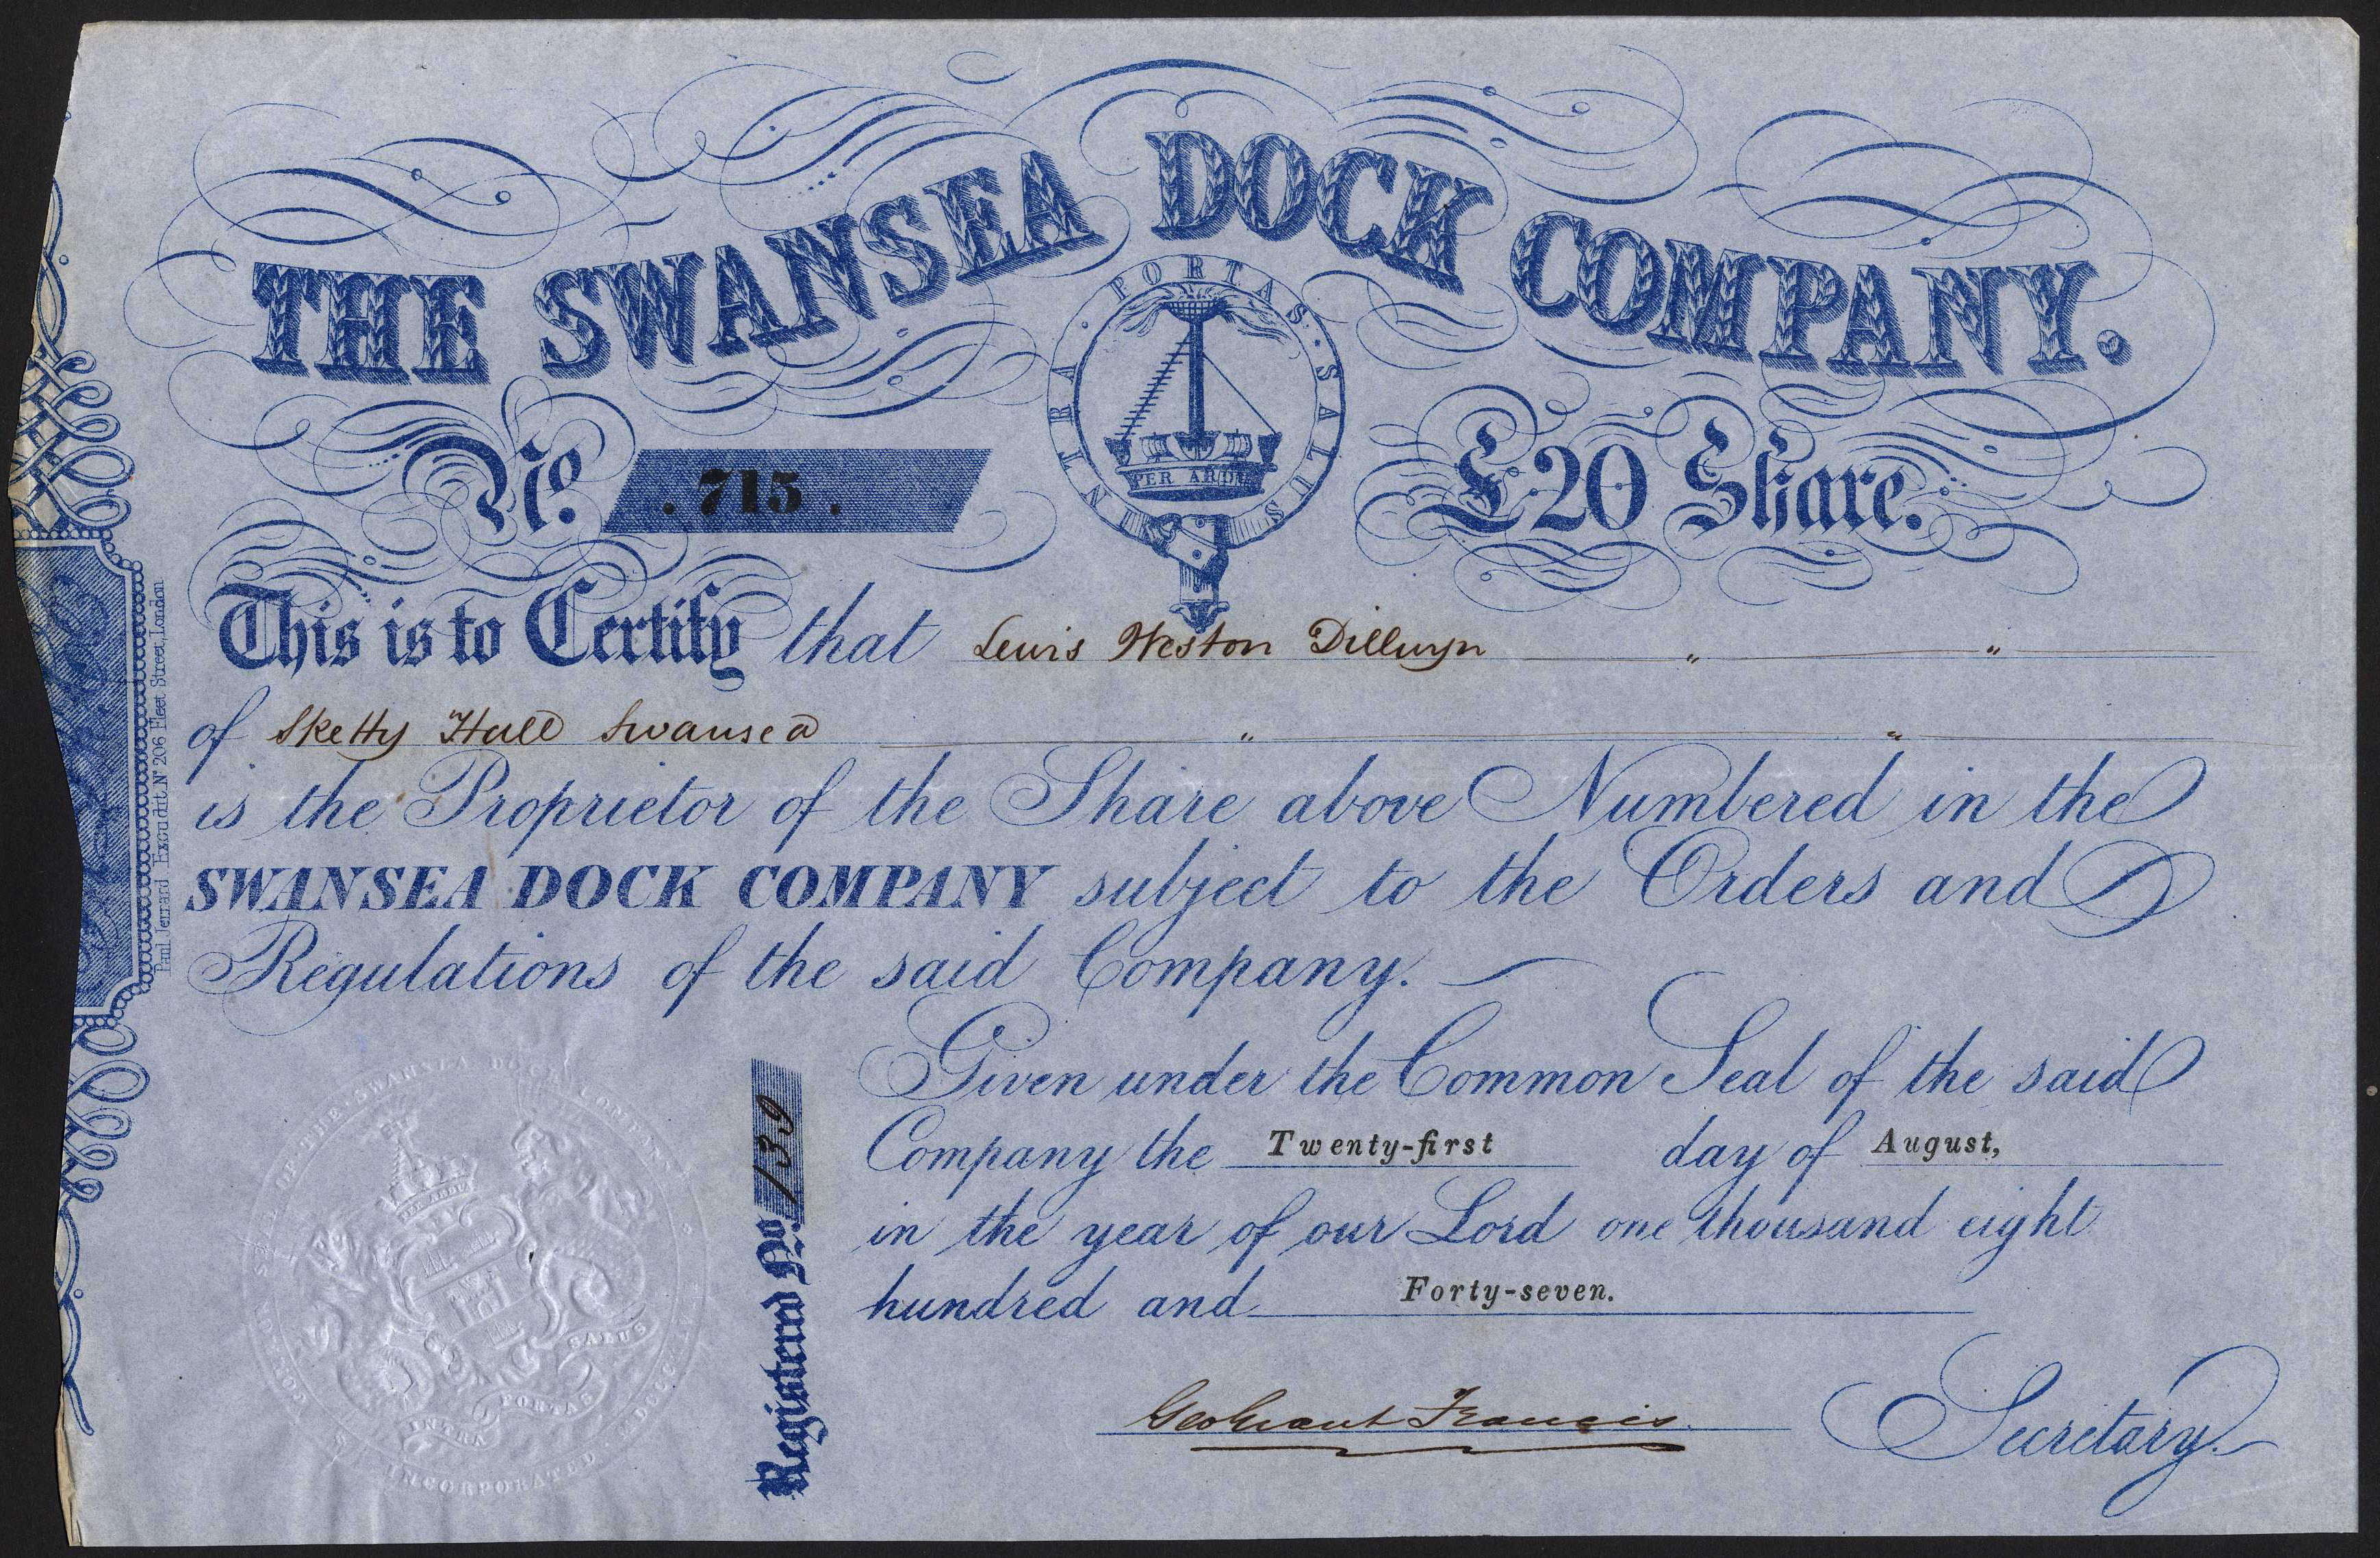 THE SWANSEA DOCK COMPANY.
INTRA · PORTAS · SALUS
PER ARDUA
No. . 715 .
£20 Share.
This is to Certify that Lewis Weston Dillwyn " "
of Sketty Hall Swansea " "
is the Proprietor of the Share above Numbered in the
SWANSEA DOCK COMPANY subject to the Orders and
Regulations of the said Company.
Given under the Common Seal of the said
Company the Twenty-first day of August,
in the year of our Lord one thousand eight
hundred and Forty-seven.
Geo Grant Francis Secretary.
Registered No. 139
Paul Jerrard Excudit No 206 Fleet Street, London
THE SWANSEA DOCK COMPANY
INTRA PORTAS SALUS
INCORPORATED